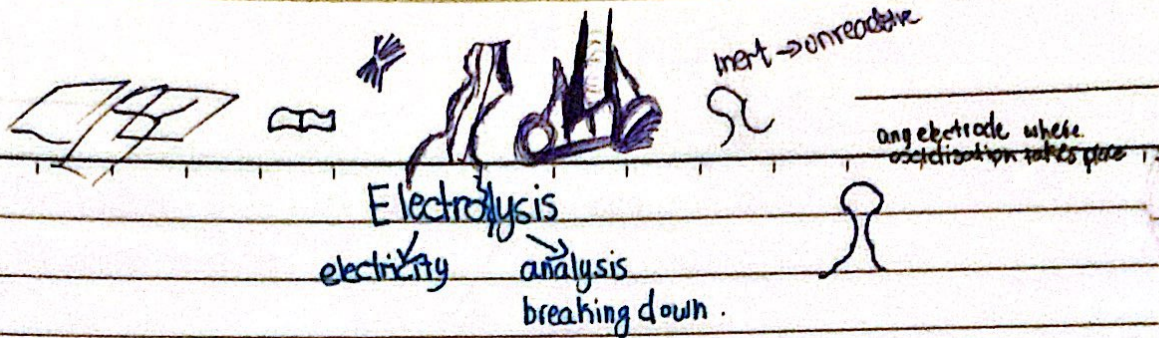 inert → unreactive
ang electrode where
oxidisation takes place
Electrolysis
electricity analysis
breaking down.